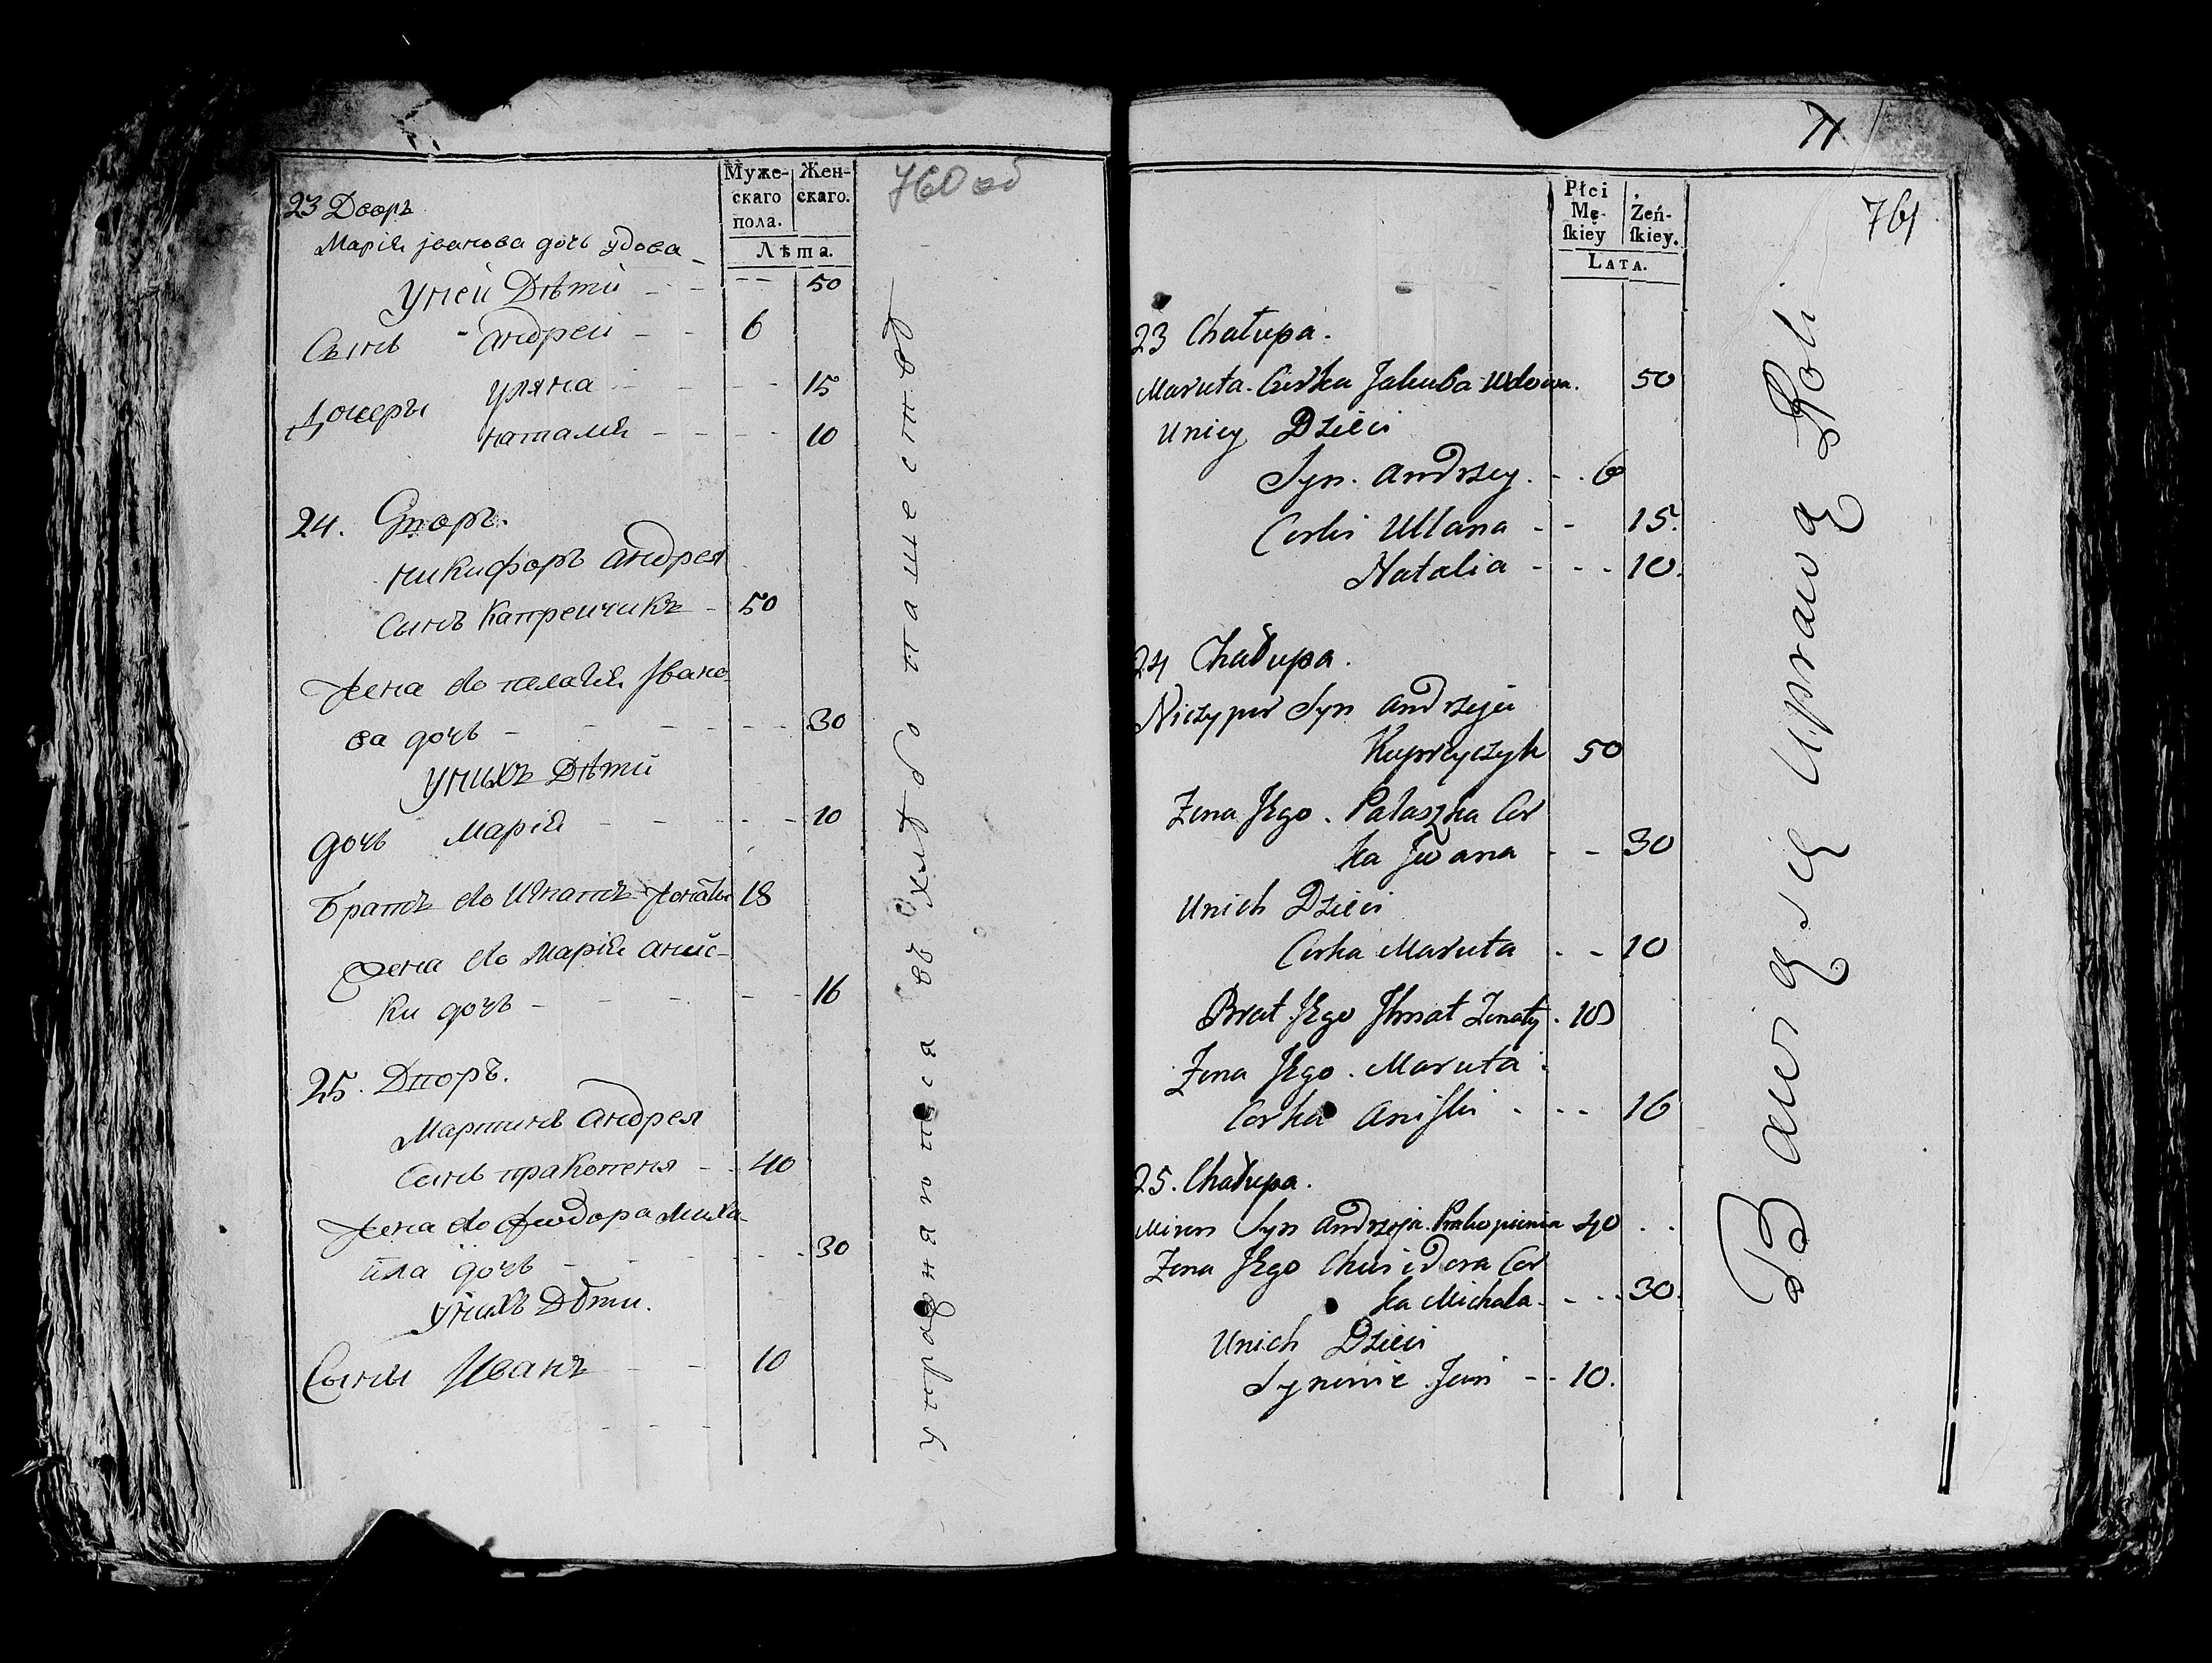 760 об
Муже-
скаго
пола.
Жен-
скаго.
Лѣта.
23 Дворъ
Марія јванова дочь удова
Уней Дѣти - - - - 50
Сынъ Андрей - - 6
Дочеры Уляна - - - 15
Наталія - - - - 10
24. Дворъ.
Никифоръ Андрея
Сынъ Капрейчикъ - 50
Жена
Јвано-
ва дочь - - - - 30
Унихъ Дѣти
дочь Марія - - - - 10
Братъ
18
Жена
Марія Анис-
ки дочь - - - - 16
25. Дворъ.
Мартинъ Андрея
Сынъ Пракопеня - - 40
Жена
Феодора Миха-
ила дочь - - - 30
Унихъ Дѣти.
Сыны Иванъ - - 10
упражняются въ хлѣбопашествѣ
71
761
Płci
Mę-
ſkiey
Żeń-
ſkiey.
LATA.
23 Chałupa.
Maruta. Corka Jakuba Wdowa. 50
Uniey Dzieci
Syn. Andrzey. - . 6
Corki Ullana - - 15.
Natalia - - - 10.
24 Chałupa.
Niczypor Syn Andrzeja
Kuprzyczyk 50
Zona Jego. Pałaszka Cor
ka Jwana - - 30
Unich Dzieci
Corka Maruta . - 10
Brat Jego Jhnat Zonaty . 18
Zona Jego. Maruta.
Corka Aniſki . - - 16
25. Chałupa.
Miron Syn Andrzeja. Prakopienia 40 . .
Zona Jego Chwiedora Cor
ka Michała. - - . 30.
Unich Dzieci
Synowie Jan - - 10.
Bawią się Uprawą Roli